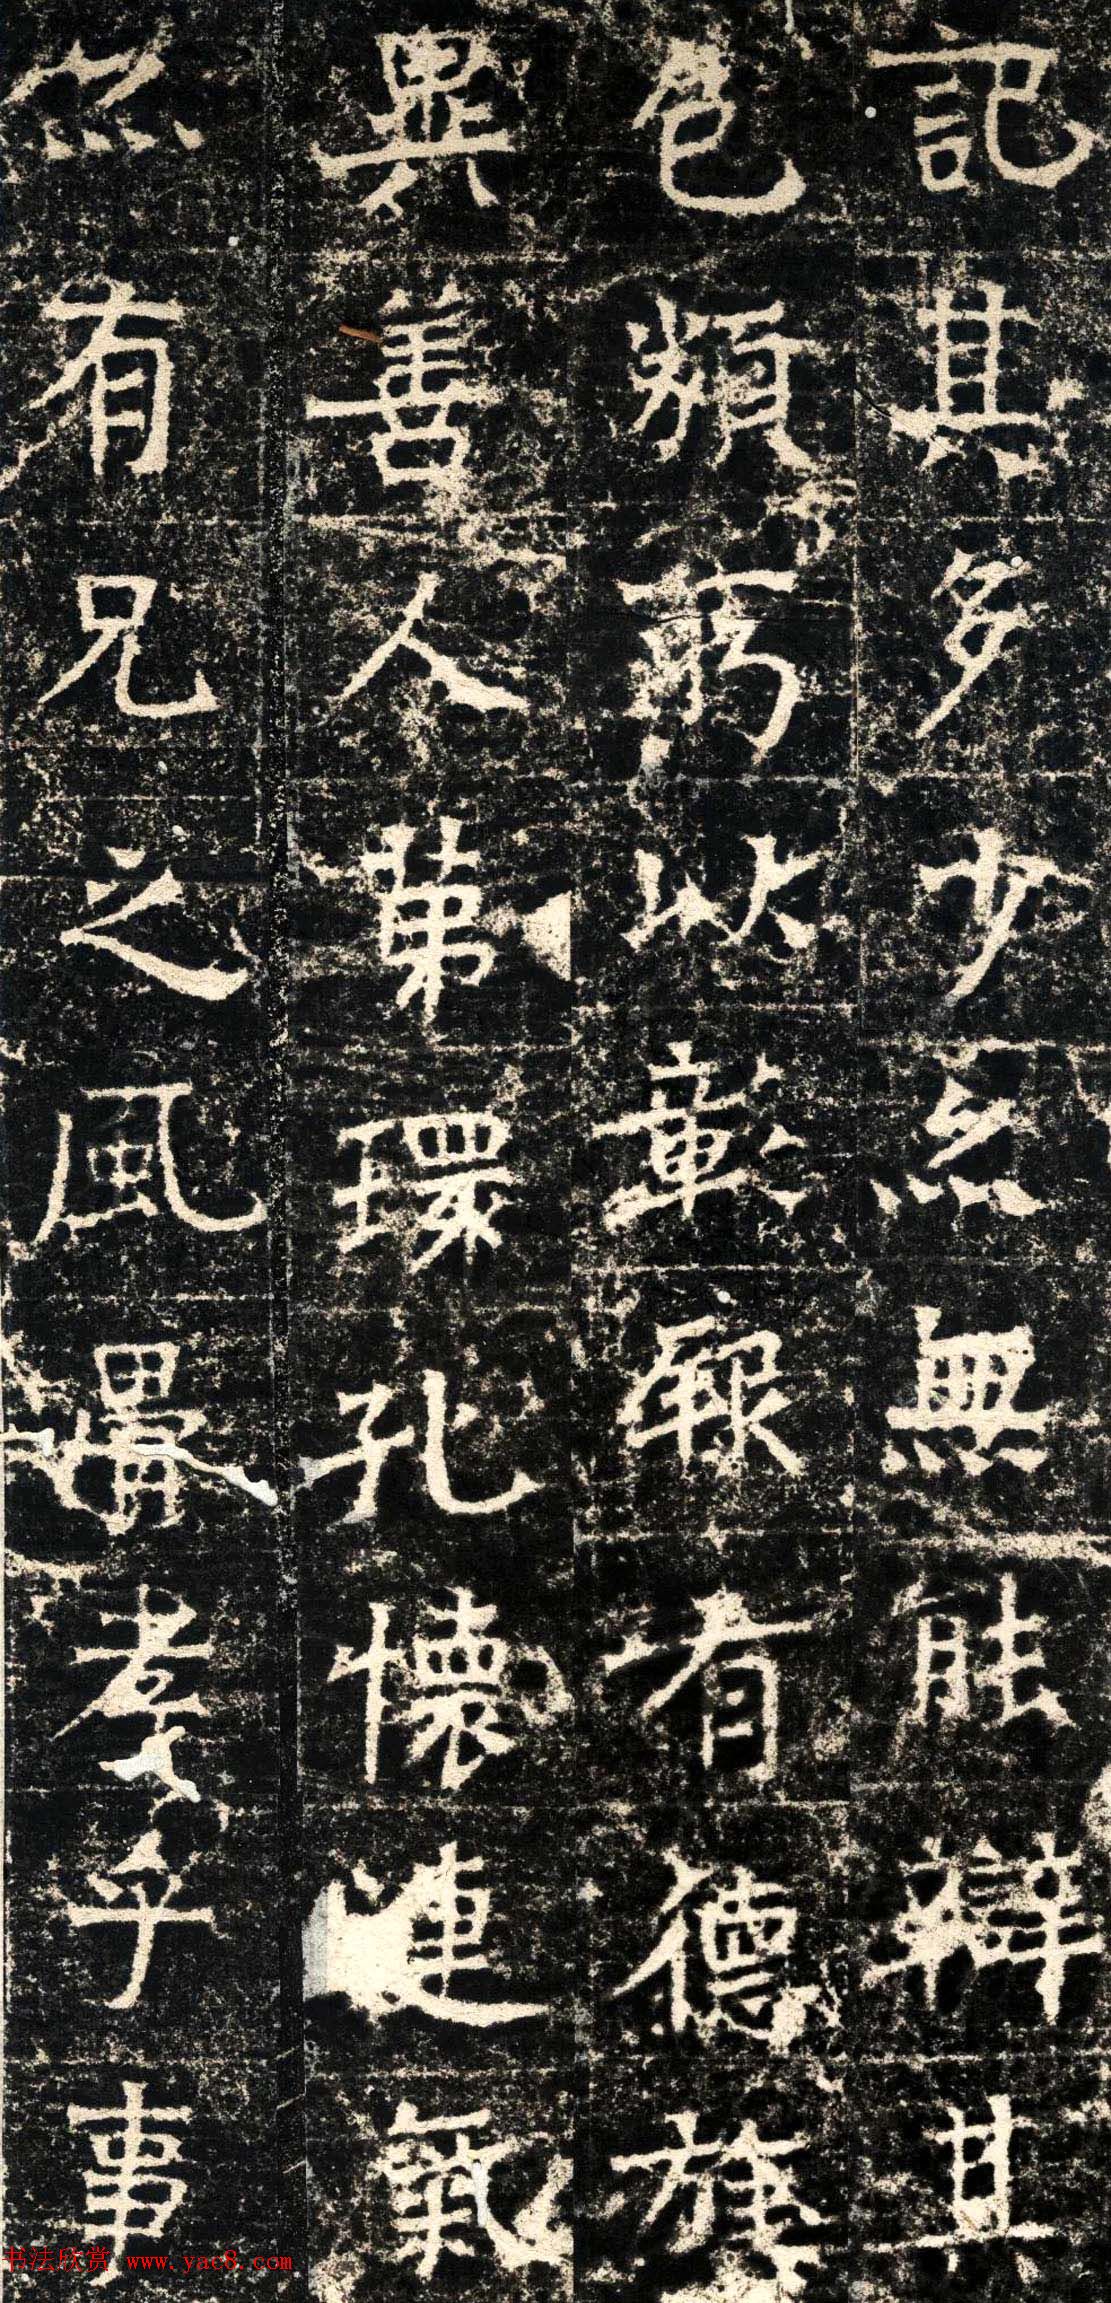 記其多少無能辯其
色類所以彰報有德旌
異善人弟環孔懷連氣
有兄之風孝乎事
书法欣赏 www.yac8.com